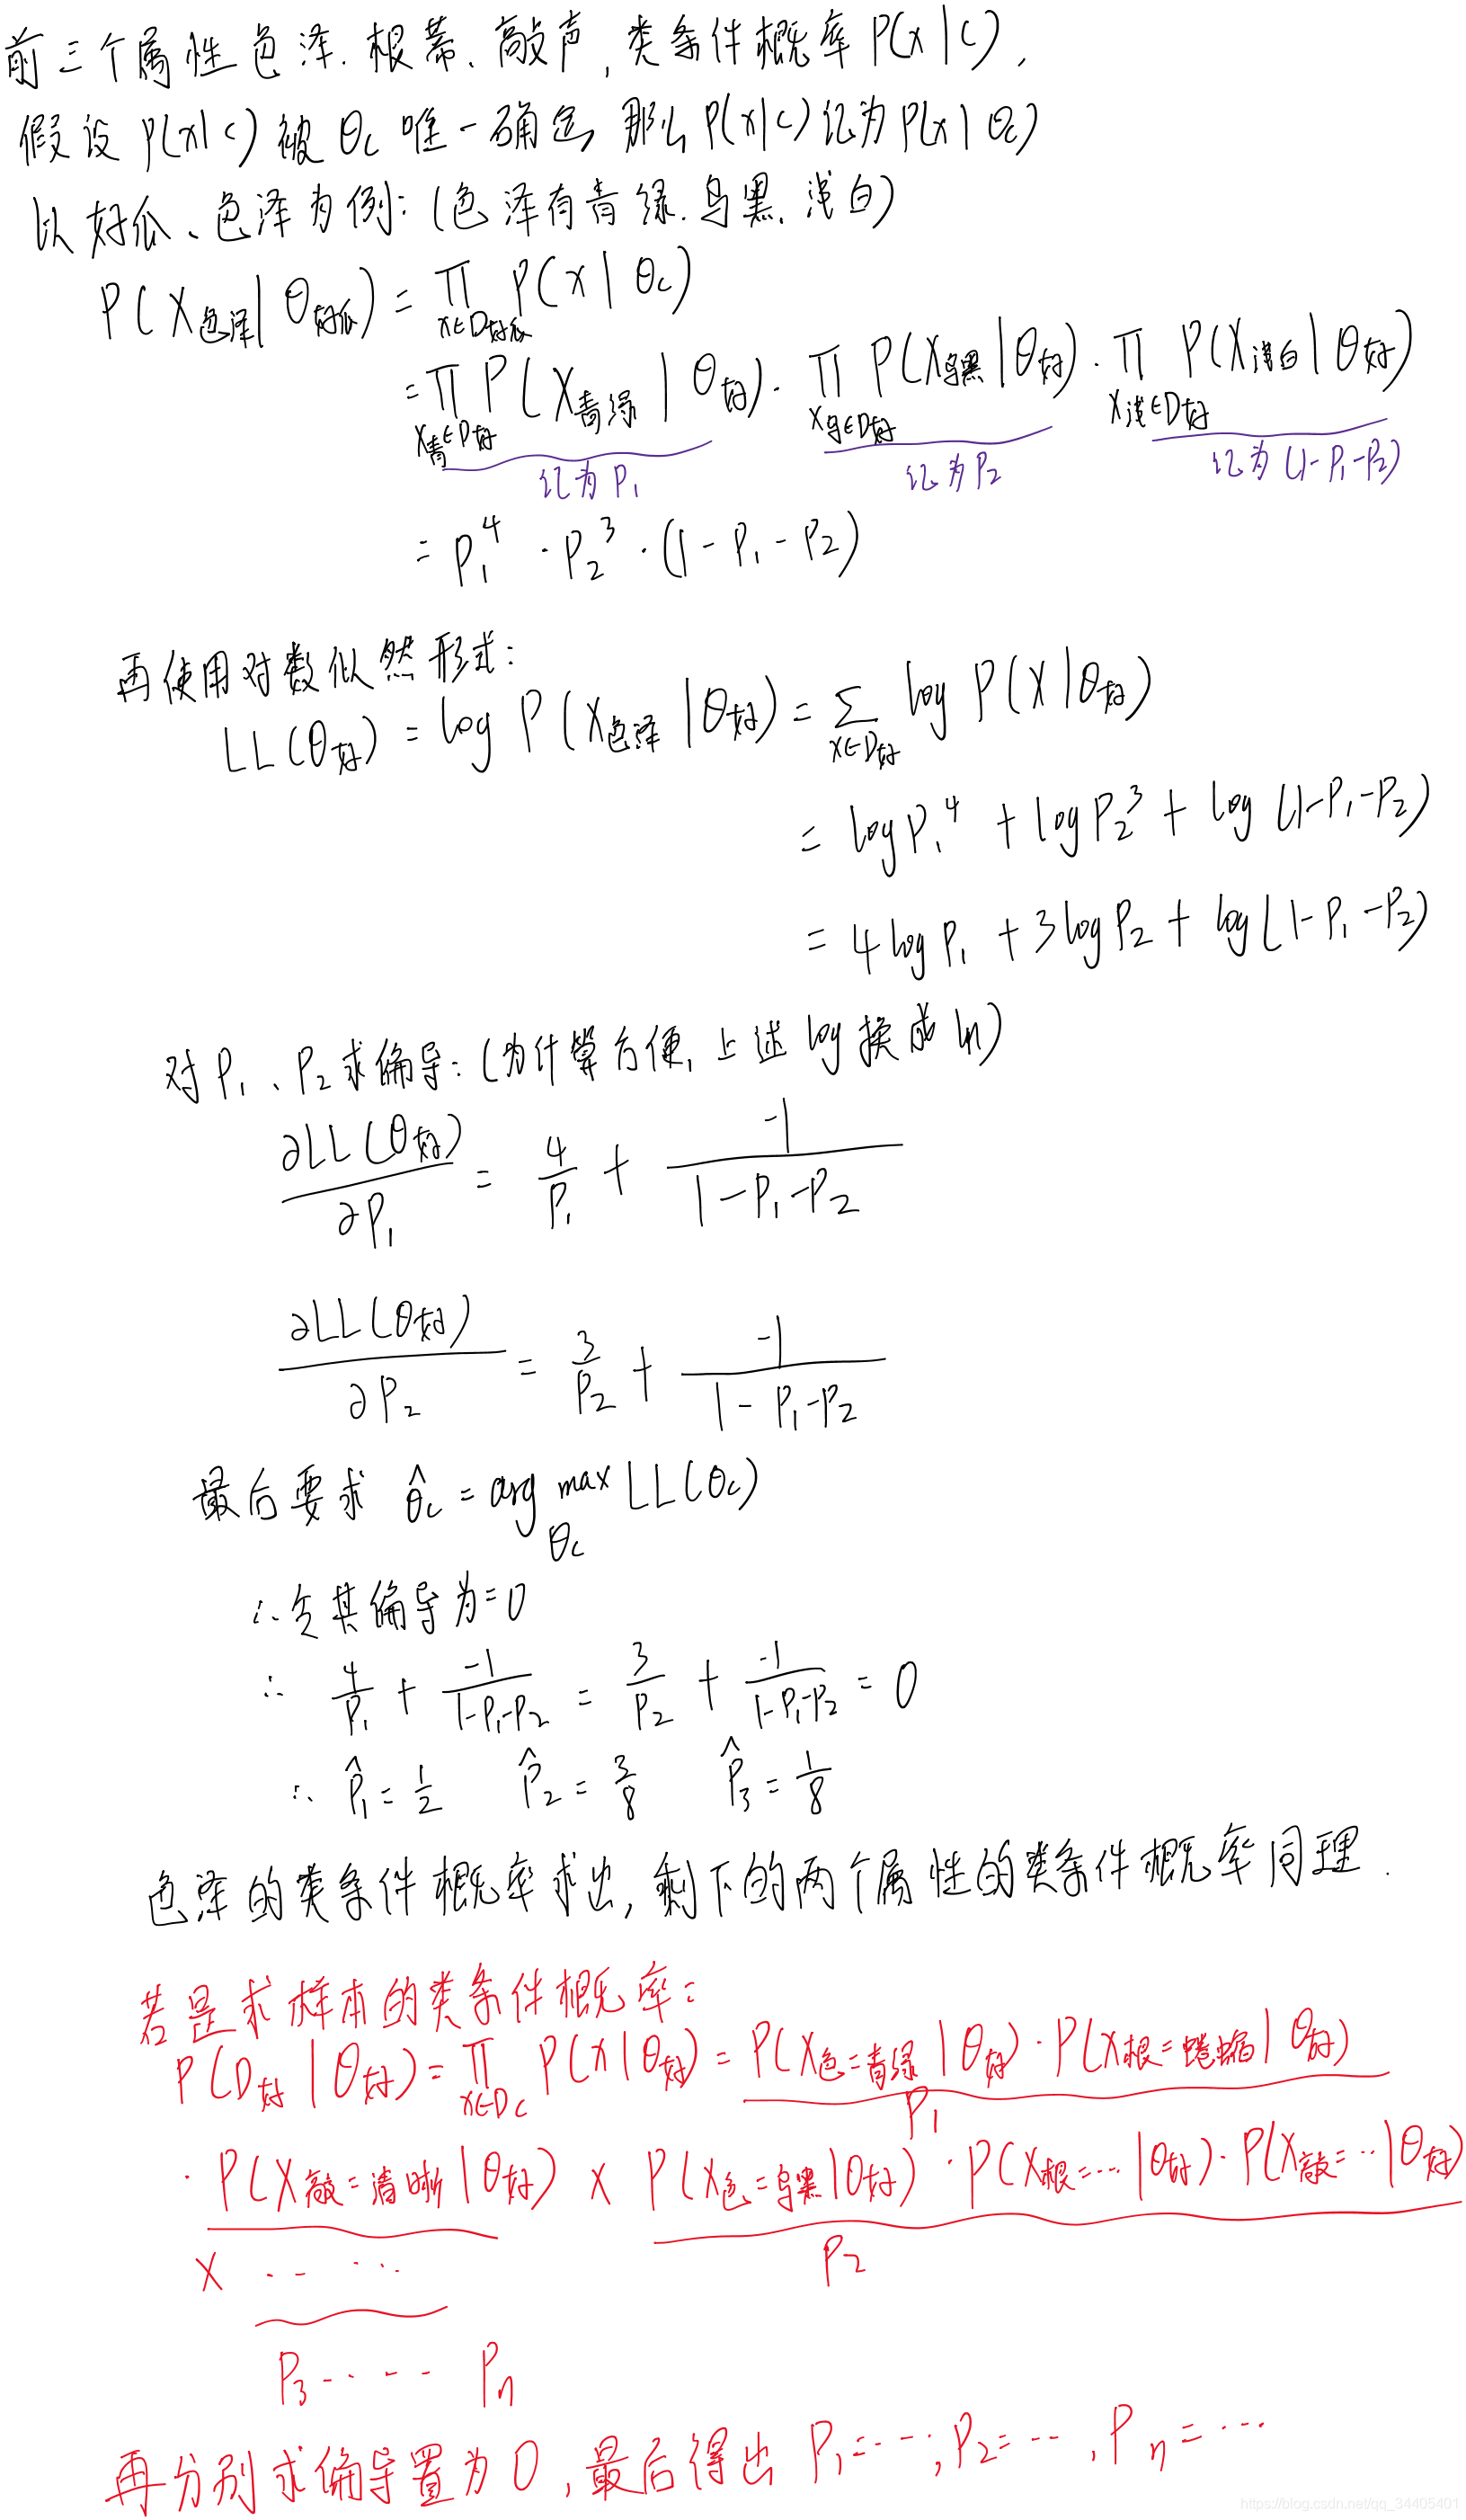 前三个属性色泽、根蒂、敲声,类条件概率P(x|c),
假设P(x|c)被θc唯一确定,那么P(x|c)记为P(x|θc)
以好瓜、色泽为例:(色泽有青绿、乌黑、浅白)
P(X色泽|θ好瓜) = ∏x∈D好瓜 P(x|θc)
= ∏X青∈D好 P(X青绿|θ好) · ∏X乌∈D好 P(X乌黑|θ好) · ∏X浅∈D好 P(X浅白|θ好)
记为P1 记为P2 记为(1-P1-P2)
= P1^4 · P2^3 · (1-P1-P2)
再使用对数似然形式:
LL(θ好) = log P(X色泽|θ好) = ∑x∈D好 log P(X|θ好)
= log P1^4 + log P2^3 + log(1-P1-P2)
= 4 log P1 + 3 log P2 + log(1-P1-P2)
对P1、P2求偏导:(为计算方便,上述log换成ln)
∂LL(θ好)/∂P1 = 4/P1 + -1/(1-P1-P2)
∂LL(θ好)/∂P2 = 3/P2 + -1/(1-P1-P2)
最后要求 θ̂c = arg max θc LL(θc)
∴令其偏导为=0
∴ 4/P1 + -1/(1-P1-P2) = 3/P2 + -1/(1-P1-P2) = 0
∴ P̂1 = 1/2 P̂2 = 3/8 P̂3 = 1/8
色泽的类条件概率求出,剩下的两个属性的类条件概率同理.
若是求样本的类条件概率:
P(D好|θ好) = ∏x∈Dc P(x|θ好) = P(X色=青绿|θ好) · P(X根=蜷缩|θ好)
P1
· P(X敲=清晰|θ好) × P(X色=乌黑|θ好) · P(X根=...|θ好) · P(X敲=...|θ好)
P2
× ... ...
P3 ..... Pn
再分别求偏导置为0,最后得出 P1=...; P2=..., Pn=...
https://blog.csdn.net/qq_34405401